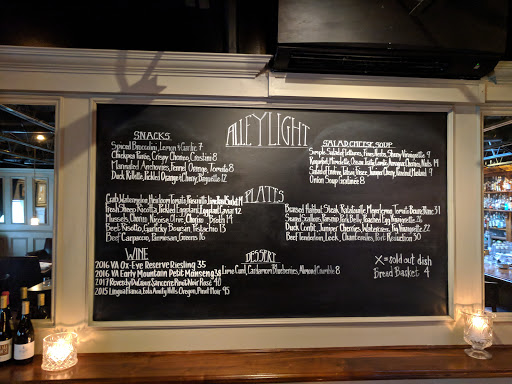 ALLEYLIGHT
SNACKS
Spiced Broccolini, Lemon & Garlic 7
Chickpea Panée, Crispy Chorizo, Crostini 8
Marinated Anchovies, Fennel, Orange, Tomato 8
Duck Rillette, Pickled Cherry, Baguette 12
SALAD, CHEESE, SOUP
Simple Salad of Lettuces, Fines Herbs, Sherry Vinaigrette 9
Roquefort, Cherries, Nuts 14
Salad of Endive,
Onion Soup Gratinée 8
PLATES
Crab, Watermelon, Heirloom Tomato,
Fresh Sheep Ricotta, Pickled Eggplant, Eggplant Caviar 12
Mussels, Chorizo, Niçoise Olive, 14
Beef, Risotto, Garlicky Boursin, Pistachio 13
Beef Carpaccio, Parmesan, Greens 16
Halibut Steak, Ratatouille, Meyer Lemon, Tomato 31
Scallops, Pork Belly, Poached Egg, Vinaigrette
Duck Confit, Cherries, Watercress, Fig Vinaigrette 22
Beef Tenderloin, Leek, Chanterelles, Port Reduction 30
WINE
2016 VA Ox-Eye Reserve Riesling 35
2016 VA Early Mountain Petit Manseng 38
2017 Sancerre, Pinot Noir Rosé 40
2015 Lingua Franca, Eola Amity Hills Oregon, Pinot Noir 95
DESSERT
Lime Curd, Cardamom Blueberries, Almond Crumble 8
X = sold out dish
Bread Basket 4